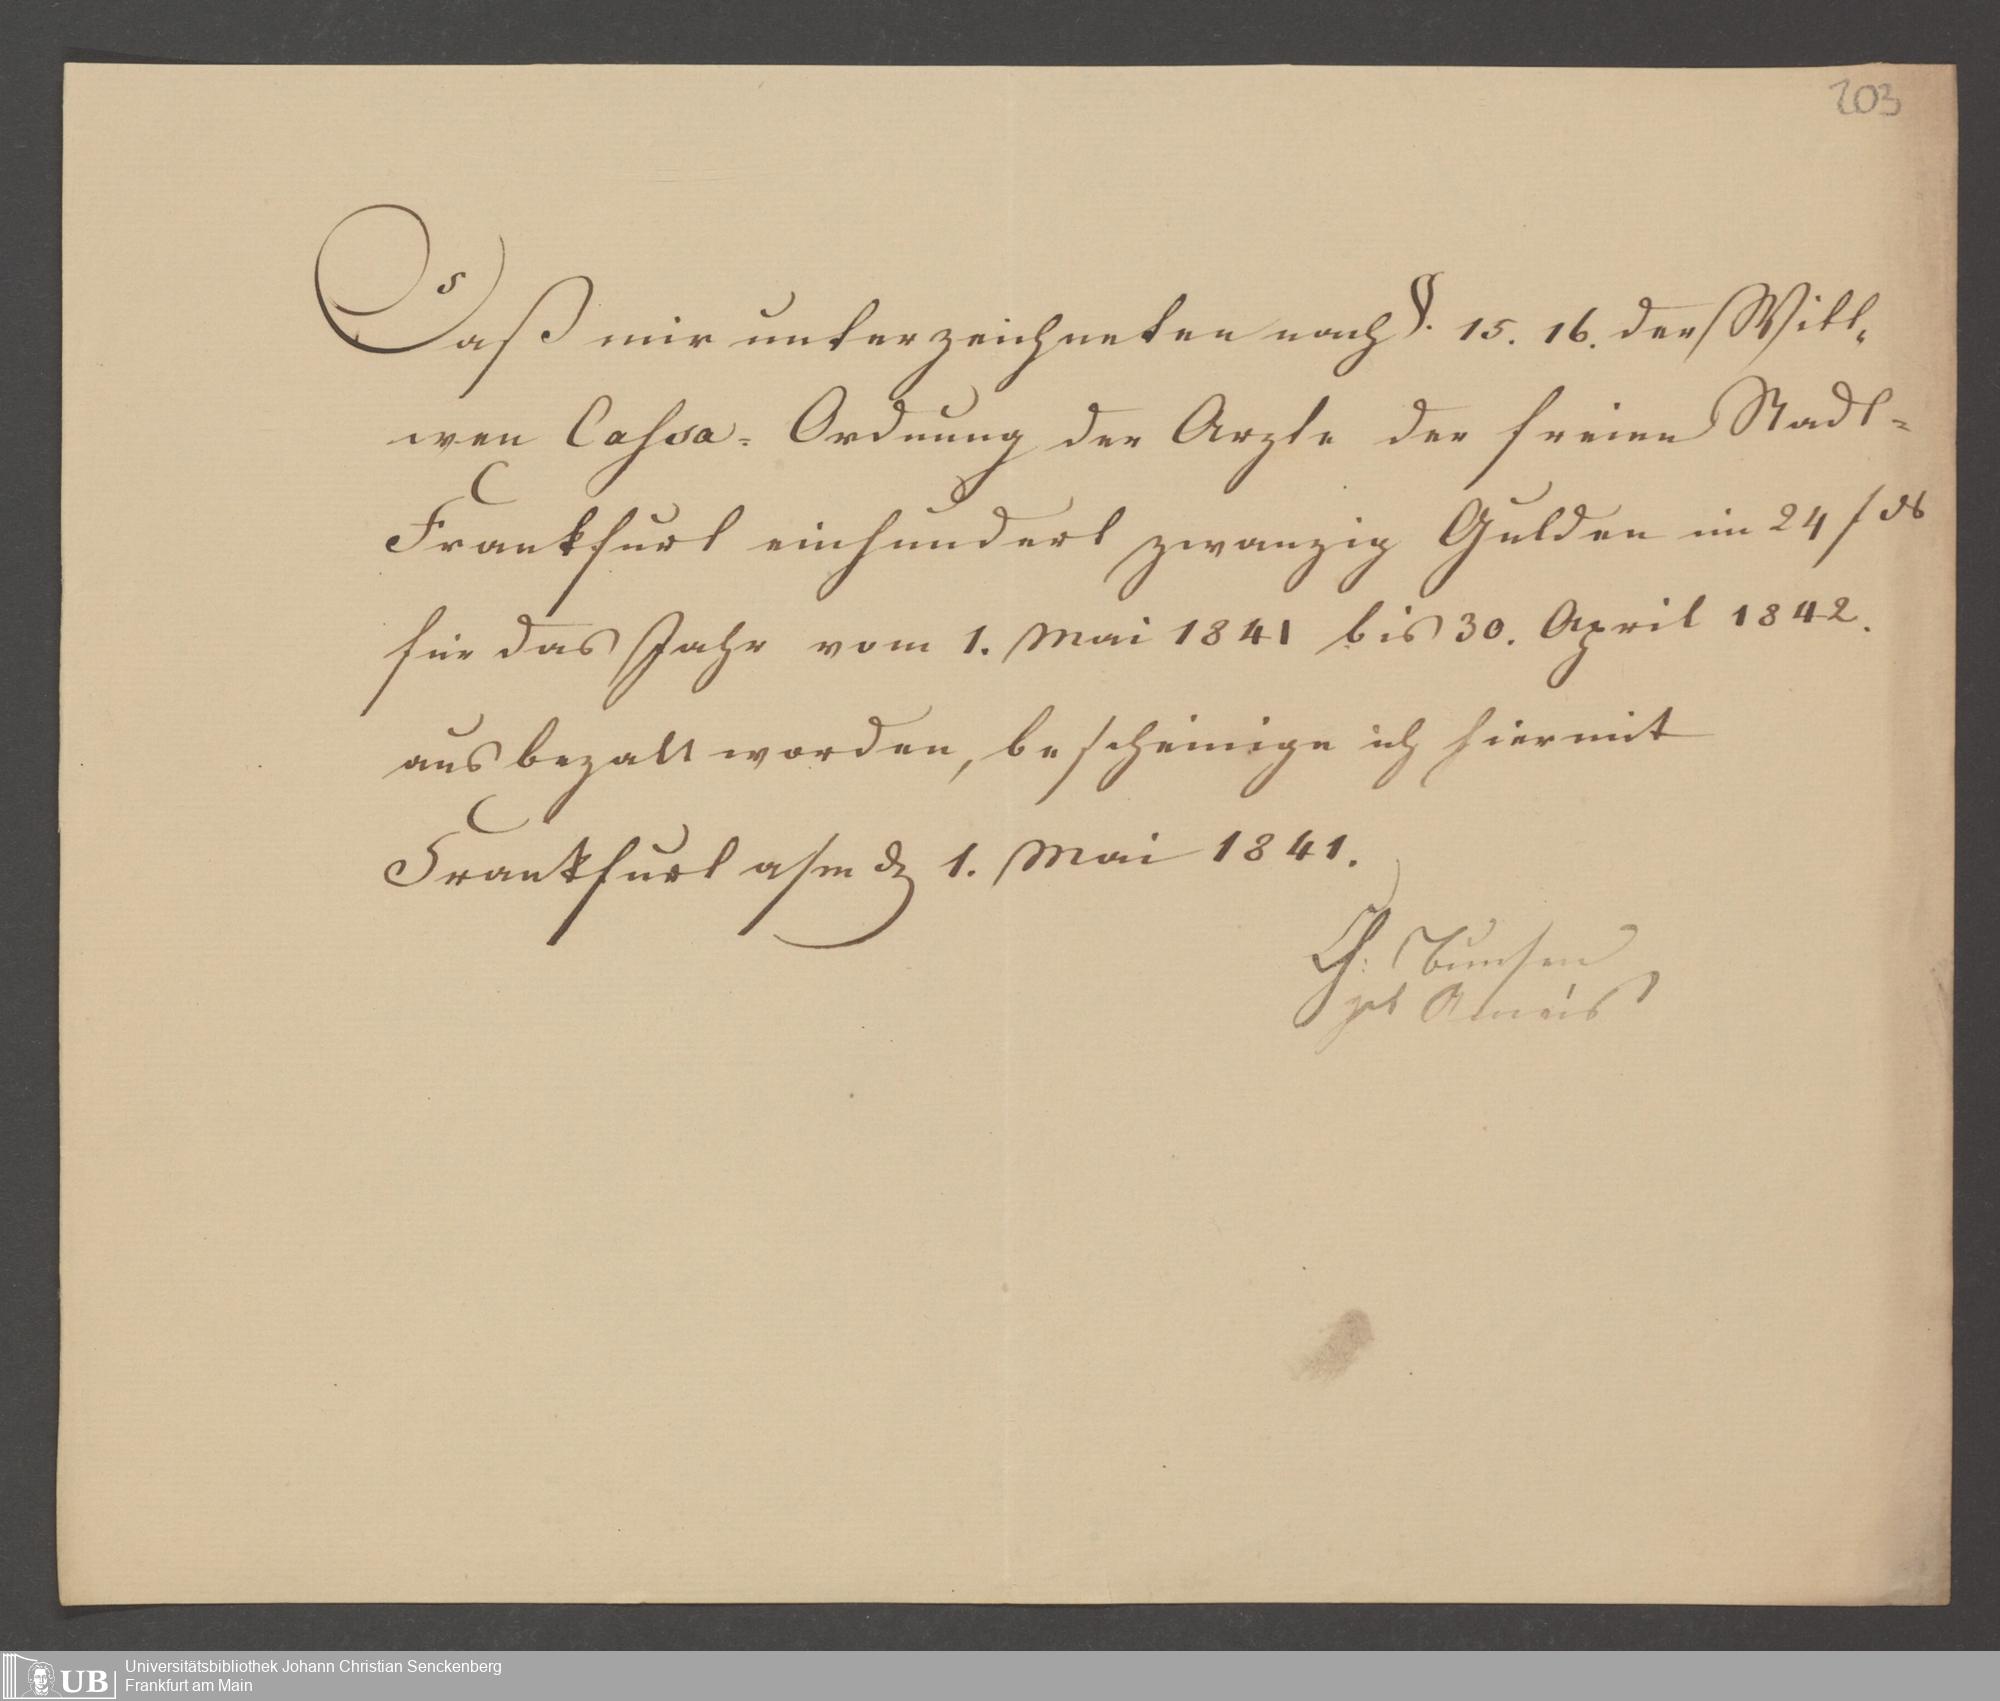 203
Daß mir unterzeichneten nach §. 15. 16. der Witt-
wen Cassa-Ordnung der Arzte der freien Stadt-
Frankfurt einhundert zwanzig Gulden im 24 f
für das Jahr vom 1. Mai 1841 bis 30. April 1842.
ausbezalt worden, bescheinige ich hiermit
Frankfurt a/m d 1. Mai 1841.
Ch: Bunsen
geb
UB
Universitätsbibliothek Johann Christian Senckenberg
Frankfurt am Main